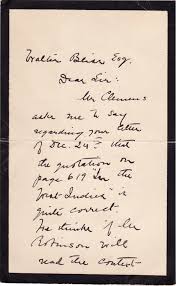 Walter Bliss Esq.
Dear Sir:
Mr Clemens
asks me to say
regarding your letter
of Dec. 24th that
the quotation on
page 619 "In the
 Indies" is
quite correct.
He thinks if Mr
Robinson will
read the context